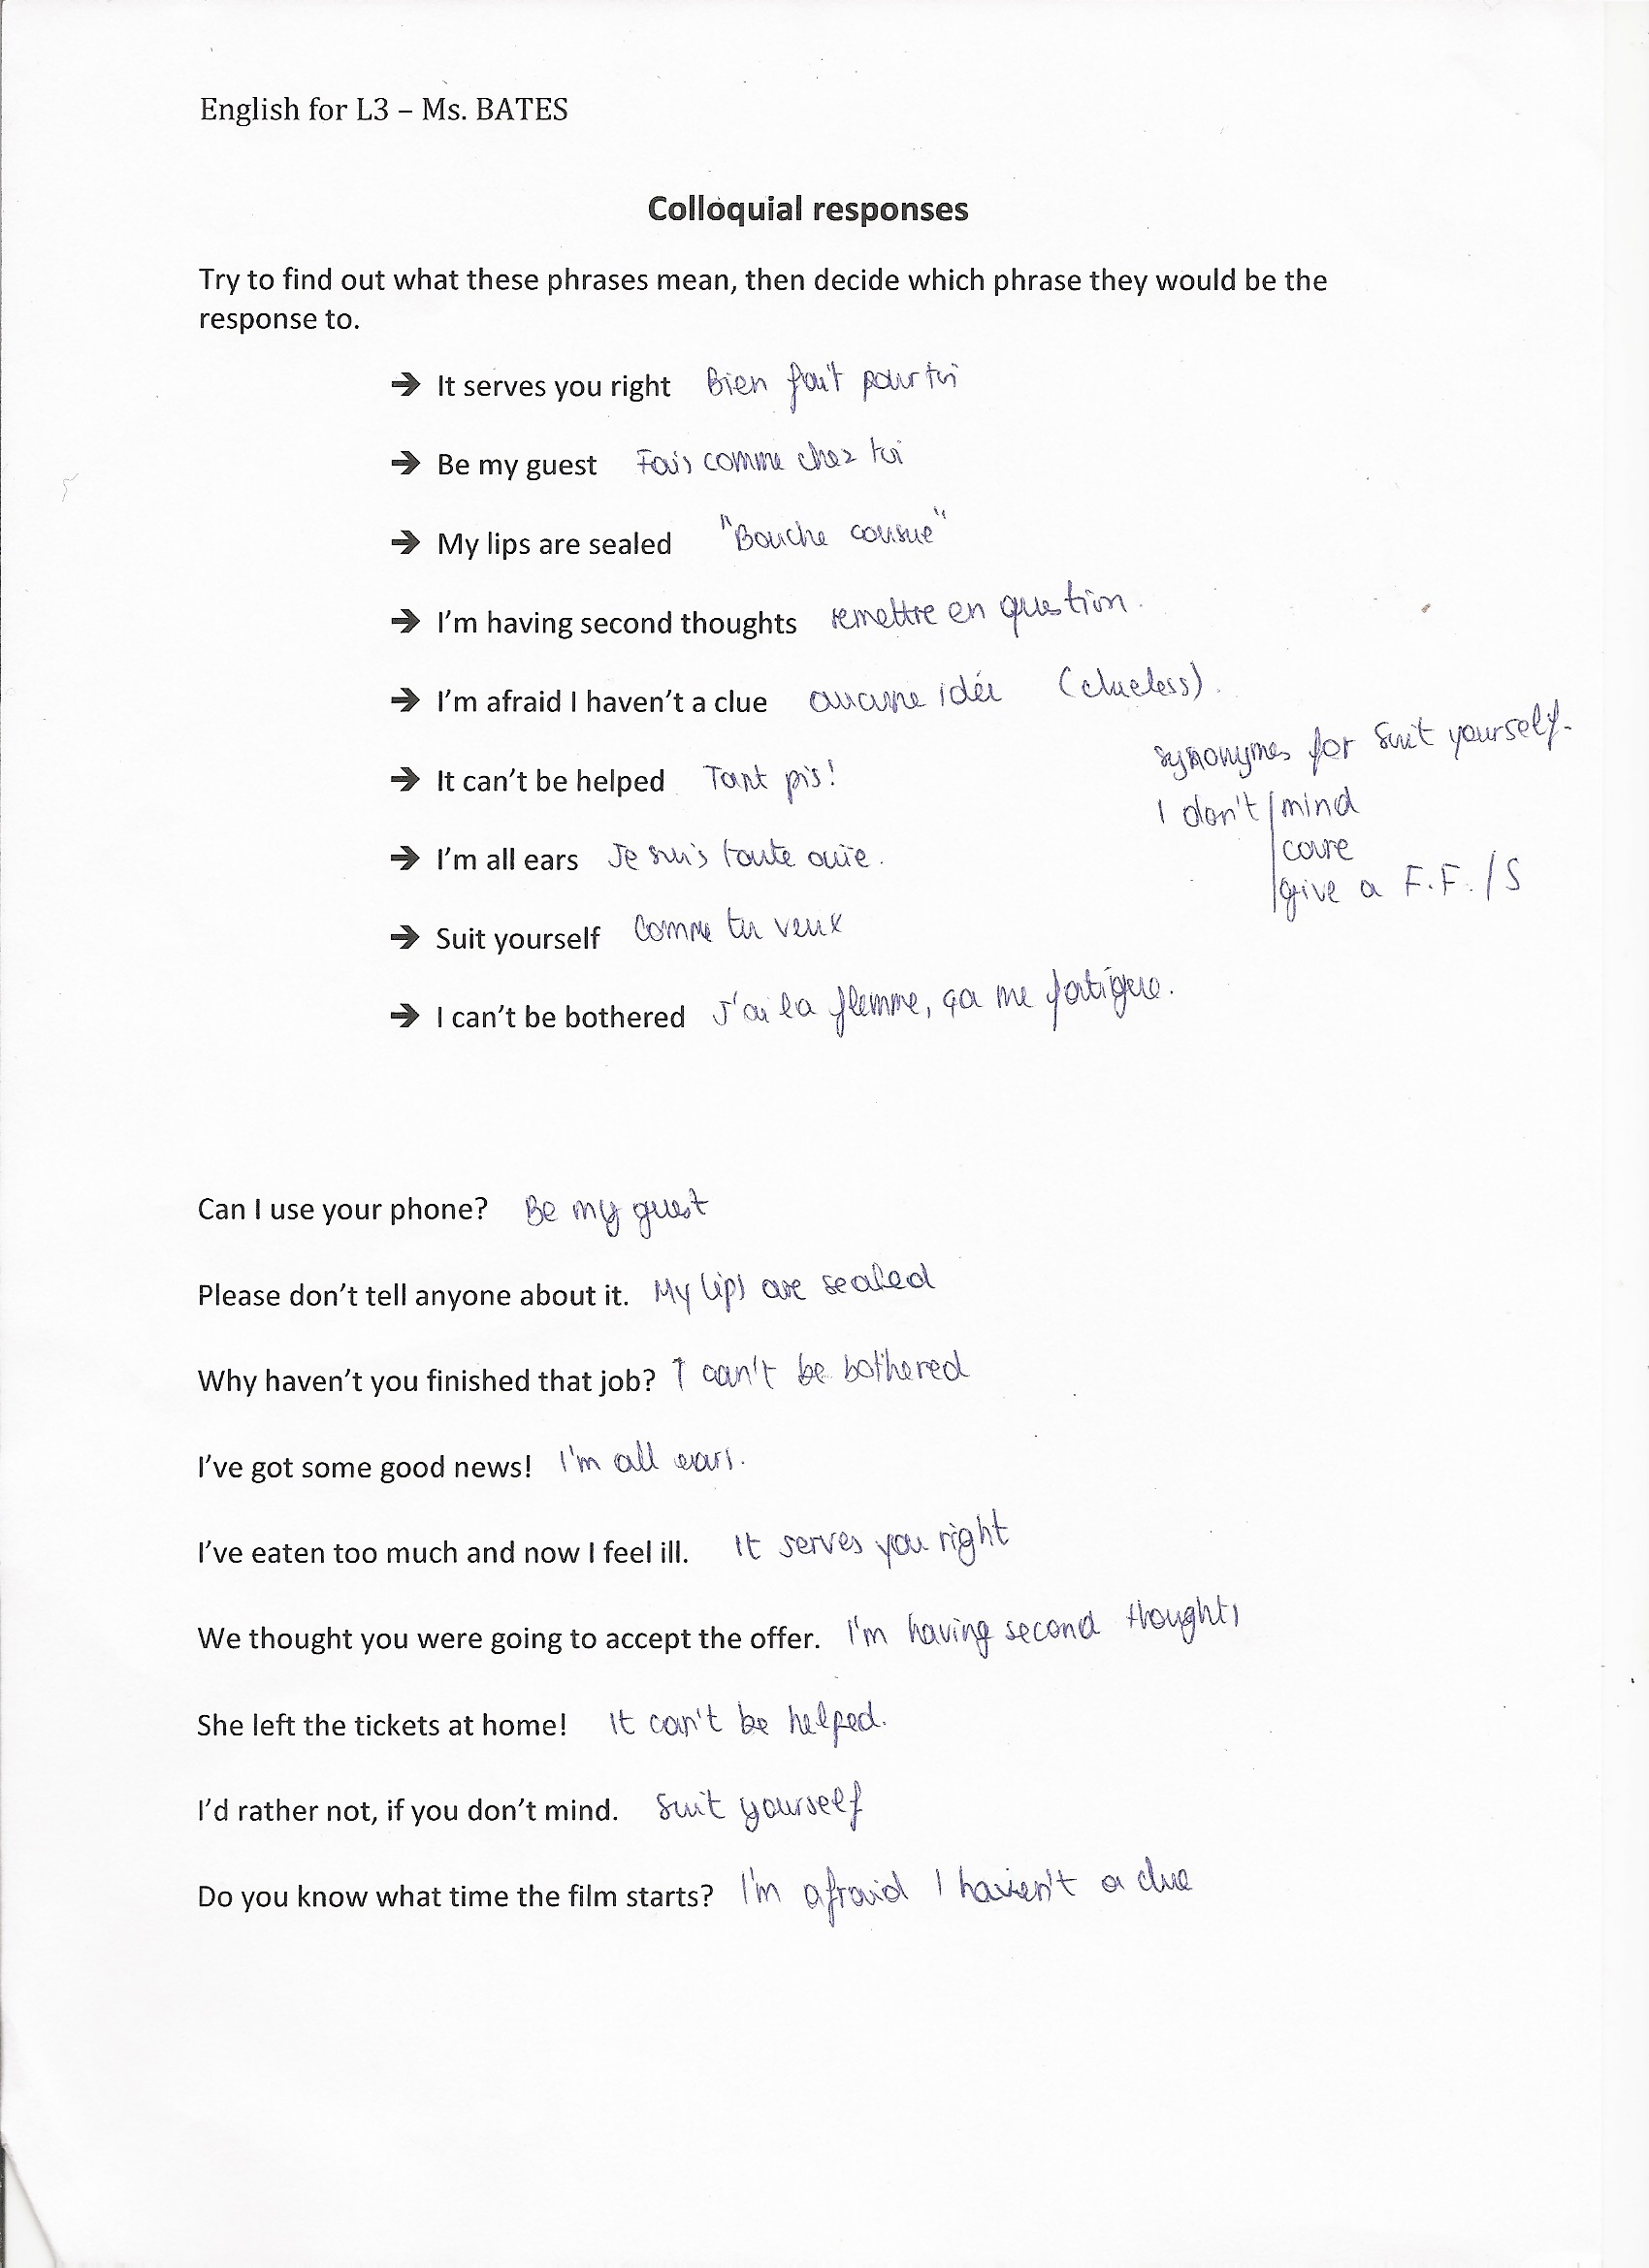 English for L3 – Ms. BATES
Colloquial responses
Try to find out what these phrases mean, then decide which phrase they would be the
response to.
➔ It serves you right Bien fait pour toi
➔ Be my guest Fais comme chez toi
➔ My lips are sealed "Bouche cousue"
➔ I'm having second thoughts remettre en question.
➔ I'm afraid I haven't a clue aucune idée (clueless).
synonymes for Suit yourself.
➔ It can't be helped Tant pis!
I don't | mind
| care
➔ I'm all ears Je suis toute ouïe.
| give a F.F. / S
➔ Suit yourself Comme tu veux
➔ I can't be bothered J'ai la flemme, ça me fatigue.
Can I use your phone? Be my guest
Please don't tell anyone about it. My lips are sealed
Why haven't you finished that job? I can't be bothered
I've got some good news! I'm all ears.
I've eaten too much and now I feel ill. It serves you right
We thought you were going to accept the offer. I'm having second thoughts
She left the tickets at home! It can't be helped.
I'd rather not, if you don't mind. Suit yourself
Do you know what time the film starts? I'm afraid I haven't a clue